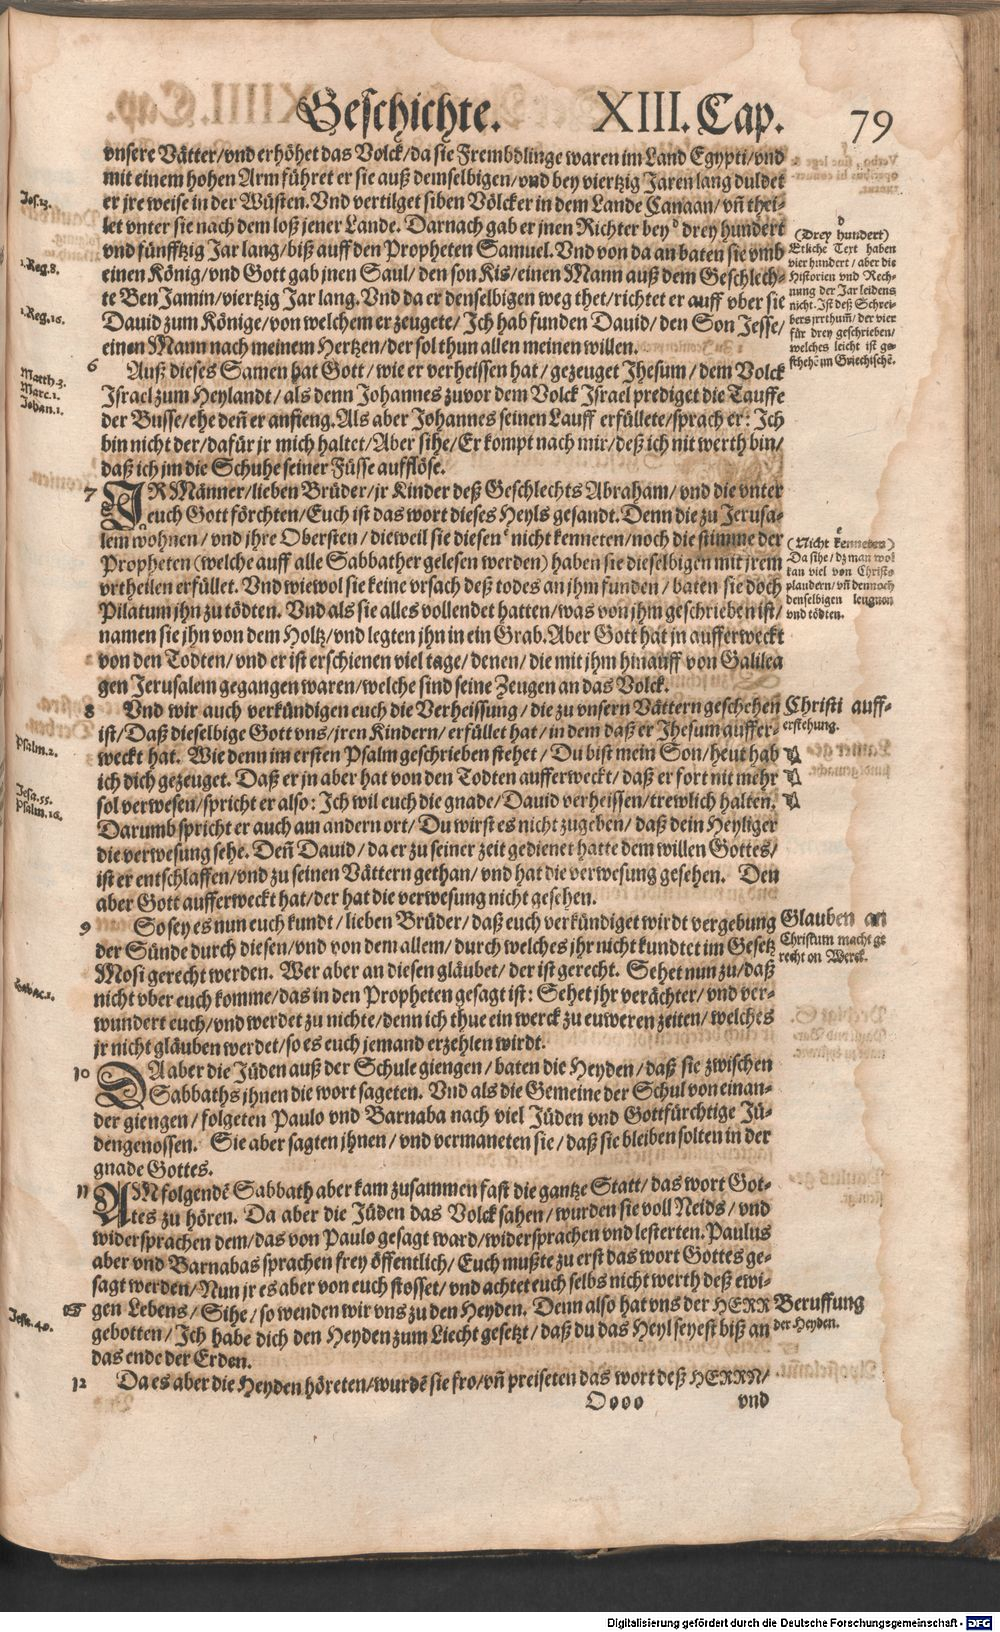 Geschichte. XIII. Cap. 79
vnsere Vätter/vnd erhöhet das Volck/da sie Frembdlinge waren im Land Egypti/vnd
mit einem hohen Arm führet er sie auß demselbigen/vnd bey viertzig Jaren lang duldet
er jre weise in der Wüsten. Vnd vertilget siben Völcker in dem Lande Canaan/vñ thei-
let vnter sie nach dem loß jener Lande. Darnach gab er jnen Richter bey d drey hundert
vnd fünfftzig Jar lang/biß auff den Propheten Samuel. Vnd von da an baten sie vmb
einen König/vnd Gott gab jnen Saul/den son Kis/einen Mann auß dem Geschlech-
te Ben Jamin/viertzig Jar lang. Vnd da er denselbigen weg thet/richtet er auff vber sie
Dauid zum Könige/von welchem er zeugete/Ich hab funden Dauid/den Son Jesse/
einen Mann nach meinem Hertzen/der sol thun allen meinen willen.
Jos.13.
1.Reg.8.
1.Reg.16.
d
(Drey hundert)
Etliche Text haben
vier hundert/aber die
Historien vnd Rech-
nung der Jar leidens
nicht. Ist deß Schrei-
bers jrrthum̃/der vier
für drey geschrieben/
welches leicht ist ge-
schehẽ im Griechischẽ.
6 Auß dieses Samen hat Gott/wie er verheissen hat/gezeuget Jhesum/dem Volck
Israel zum Heylandt/als denn Johannes zuvor dem Volck Israel prediget die Tauffe
der Busse/ehe deñ er anfieng. Als aber Johannes seinen Lauff erfüllete/sprach er: Ich
bin nicht der/dafür jr mich haltet/Aber sihe/Er kompt nach mir/deß ich nit werth bin/
daß ich jm die Schuhe seiner Füsse aufflöse.
Matth.3.
Marc.1.
Johan.1.
7 IR Männer/lieben Brüder/jr Kinder deß Geschlechts Abraham/vnd die vnter
euch Gott förchten/Euch ist das wort dieses Heyls gesandt. Denn die zu Jerusa-
lem wohnen/vnd jhre Obersten/dieweil sie diesen e nicht kenneten/noch die stimme der
Propheten (welche auff alle Sabbather gelesen werden) haben sie dieselbigen mit jrem
vrtheilen erfüllet. Vnd wiewol sie keine vrsach deß todes an jhm funden/baten sie doch
Pilatum jhn zu tödten. Vnd als sie alles vollendet hatten/was von jhm geschrieben ist/
namen sie jhn von dem Holtz/vnd legten jhn in ein Grab. Aber Gott hat jn aufferweckt
von den Todten/vnd er ist erschienen viel tage/denen/die mit jhm hinauff von Galilea
gen Jerusalem gegangen waren/welche sind seine Zeugen an das Volck.
e
(Nicht kenneten)
Da sihe/dz man wol
kan viel von Christo
plaudern/vñ dennoch
denselbigen leugnen
vnd tödten.
8 Vnd wir auch verkündigen euch die Verheissung/die zu vnsern Vättern geschehen
ist/Daß dieselbige Gott vns/jren Kindern/erfüllet hat/in dem daß er Jhesum auffer-
weckt hat. Wie denn im ersten Psalm geschrieben stehet/Du bist mein Son/heut hab
ich dich gezeuget. Daß er jn aber hat von den Todten aufferweckt/daß er fort nit mehr
sol verwesen/spricht er also: Ich wil euch die gnade/Dauid verheissen/trewlich halten.
Darumb spricht er auch am andern ort/Du wirst es nicht zugeben/daß dein Heyliger
die verwesung sehe. Deñ Dauid/da er zu seiner zeit gedienet hatte dem willen Gottes/
ist er entschlaffen/vnd zu seinen Vättern gethan/vnd hat die verwesung gesehen. Den
aber Gott aufferweckt hat/der hat die verwesung nicht gesehen.
Psalm.2.
Jesa.55.
Psalm.16.
Christi auff-
erstehung.
9 So sey es nun euch kundt/lieben Brüder/daß euch verkündiget wirdt vergebung
der Sünde durch diesen/vnd von dem allem/durch welches jhr nicht kundtet im Gesetz
Mosi gerecht werden. Wer aber an diesen gläubet/der ist gerecht. Sehet nun zu/daß
nicht vber euch komme/das in den Propheten gesagt ist: Sehet jhr verächter/vnd ver-
wundert euch/vnd werdet zu nichte/denn ich thue ein werck zu euweren zeiten/welches
jr nicht gläuben werdet/so es euch jemand erzehlen wirdt.
Habac.1.
Glauben an
Christum macht ge
recht on Werck.
10 DA aber die Jüden auß der Schule giengen/baten die Heyden/daß sie zwischen
Sabbaths jhnen die wort sageten. Vnd als die Gemeine der Schul von einan-
der giengen/folgeten Paulo vnd Barnaba nach viel Jüden vnd Gottfürchtige Jü-
dengenossen. Sie aber sagten jhnen/vnd vermaneten sie/daß sie bleiben solten in der
gnade Gottes.
11 AM folgendẽ Sabbath aber kam zusammen fast die gantze Statt/das wort Got-
tes zu hören. Da aber die Jüden das Volck sahen/wurden sie voll Neids/vnd
widersprachen dem/das von Paulo gesagt ward/widersprachen vnd lesterten. Paulus
aber vnd Barnabas sprachen frey öffentlich/Euch mußte zu erst das wort Gottes ge-
sagt werden/Nun jr es aber von euch stosset/vnd achtet euch selbs nicht werth deß ewi-
gen Lebens/Sihe/so wenden wir vns zu den Heyden. Denn also hat vns der HERR
gebotten/Ich habe dich den Heyden zum Liecht gesetzt/daß du das Heyl seyest biß an
das ende der Erden.
Jesa.49.
Beruffung
der Heyden.
12 Da es aber die Heyden höreten/wurdẽ sie fro/vñ preiseten das wort deß HERRN/
Oooo vnd
Digitalisierung gefördert durch die Deutsche Forschungsgemeinschaft - DFG